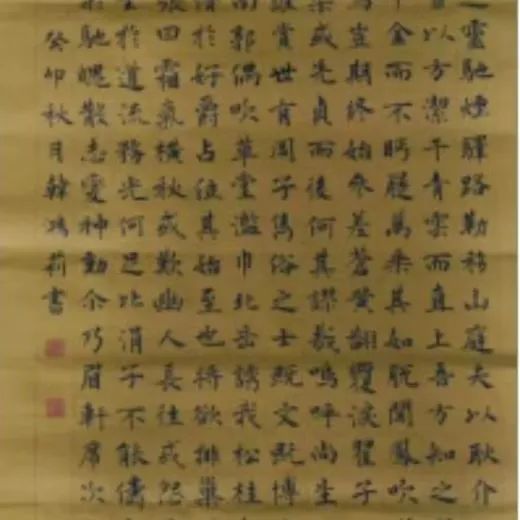 靈馳煙驛路勒移山庭夫以耿介
以方潔干青雲而直上吾方知之
金而不眄屣萬乘其如脫聞鳳吹
焉豈期終始參差蒼黃翻覆淚翟子
染或先貞而後何其謬哉嗚呼尚生
誰賞世有周子雋俗之士既文既博
南郭偶吹草堂濫巾北岳誘我松桂
情於好爵占位其始至也將欲排巢
張日霜氣橫秋或歎幽人長往或怨
於道流務光何足比涓子不能儔
馳魄散志變神動尒乃眉軒席次
癸卯秋月韓鴻莉書